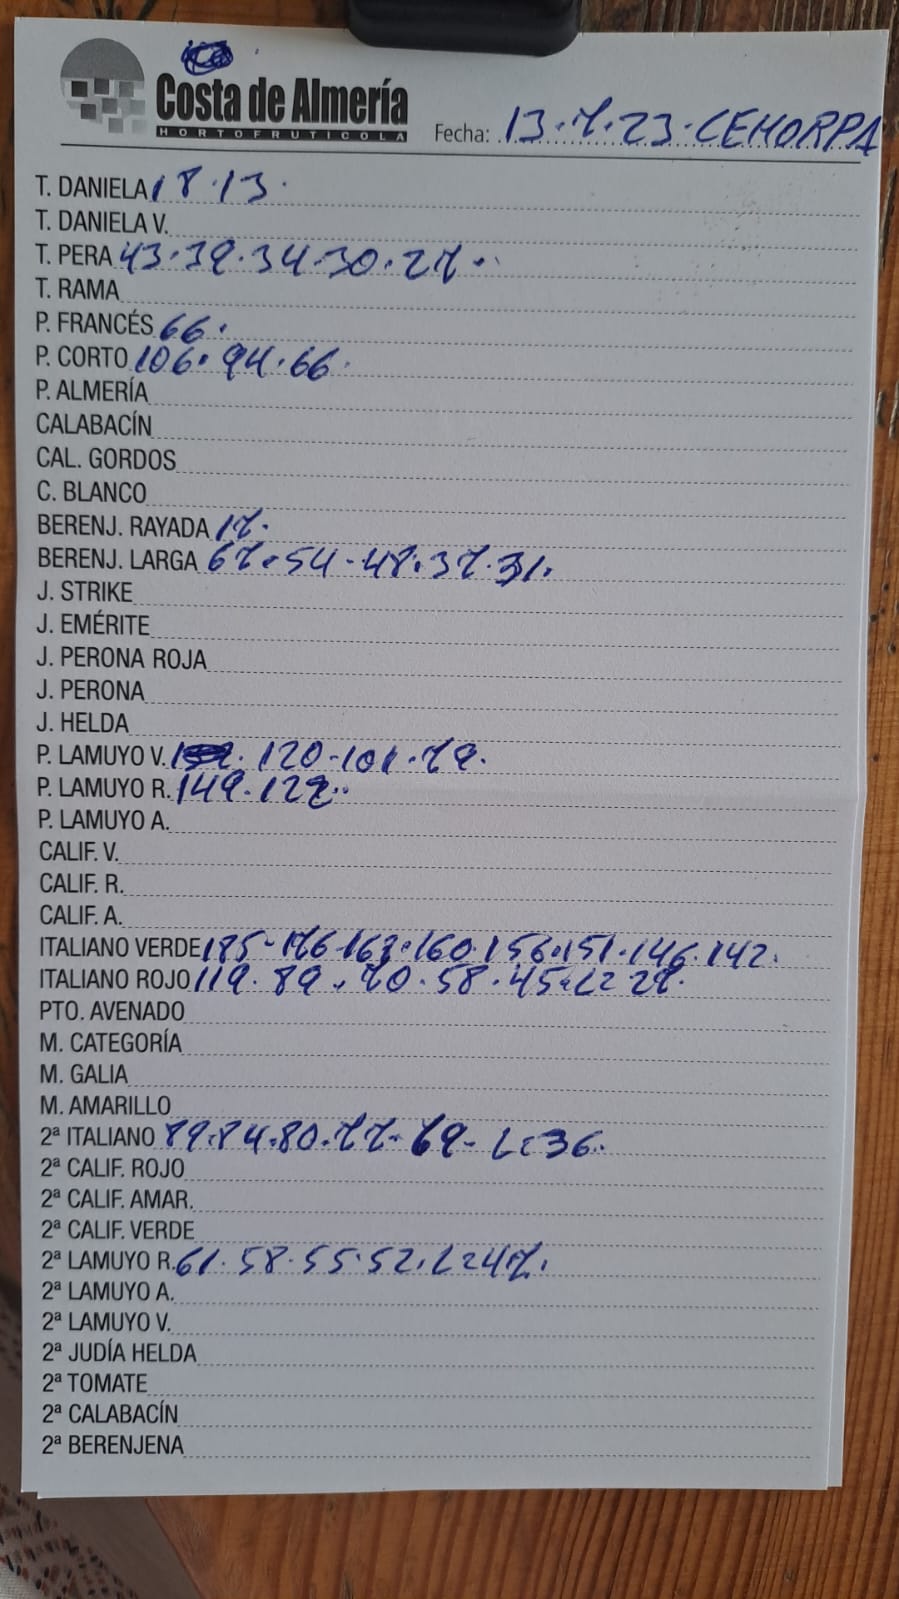 Costa de Almería
HORTOFRUTICOLA
Fecha: 13.7.23.CEHORPA
T. DANIELA 18.13.
T. DANIELA V.
T. PERA 43.39.34.30.27.
T. RAMA
P. FRANCÉS 66.
P. CORTO 106.94.66.
P. ALMERÍA
CALABACÍN
CAL. GORDOS
C. BLANCO
BERENJ. RAYADA 17.
BERENJ. LARGA 67.54-48.37.31.
J. STRIKE
J. EMÉRITE
J. PERONA ROJA
J. PERONA
J. HELDA
P. LAMUYO V. 120-101.79.
P. LAMUYO R. 149.129.
P. LAMUYO A.
CALIF. V.
CALIF. R.
CALIF. A.
ITALIANO VERDE 185-176-167.160.156.151.146.142.
ITALIANO ROJO 119.89.70.58.45. 27.
PTO. AVENADO
M. CATEGORÍA
M. GALIA
M. AMARILLO
2ª ITALIANO 89.84.80.77-69- 36.
2ª CALIF. ROJO
2ª CALIF. AMAR.
2ª CALIF. VERDE
2ª LAMUYO R. 61.58.55.52. 47.
2ª LAMUYO A.
2ª LAMUYO V.
2ª JUDÍA HELDA
2ª TOMATE
2ª CALABACÍN
2ª BERENJENA